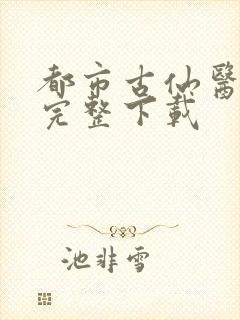 都市古仙醫
完整下載
池非雪